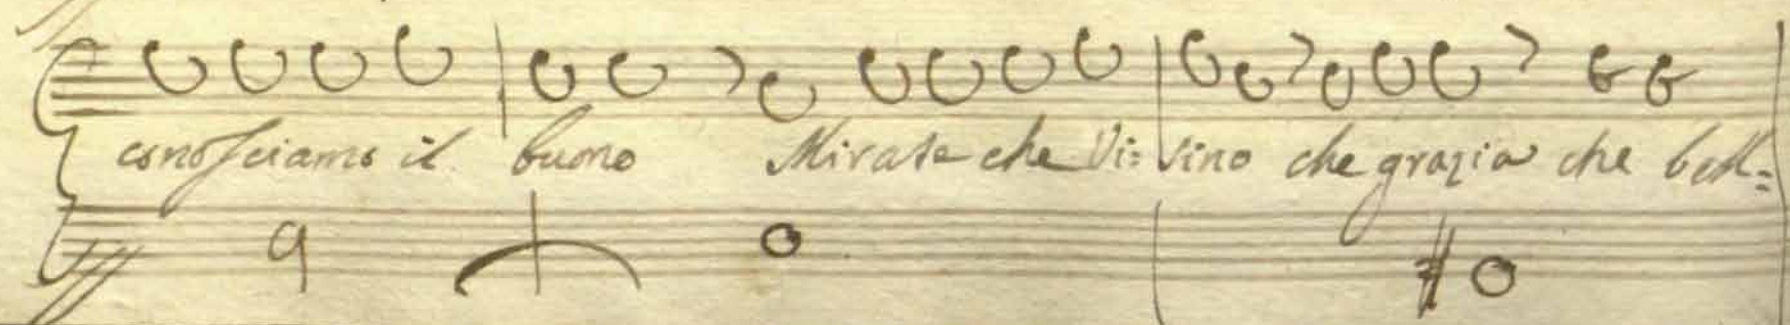 conosciamo il buono Mirate che Vi= sino che grazia che bell=